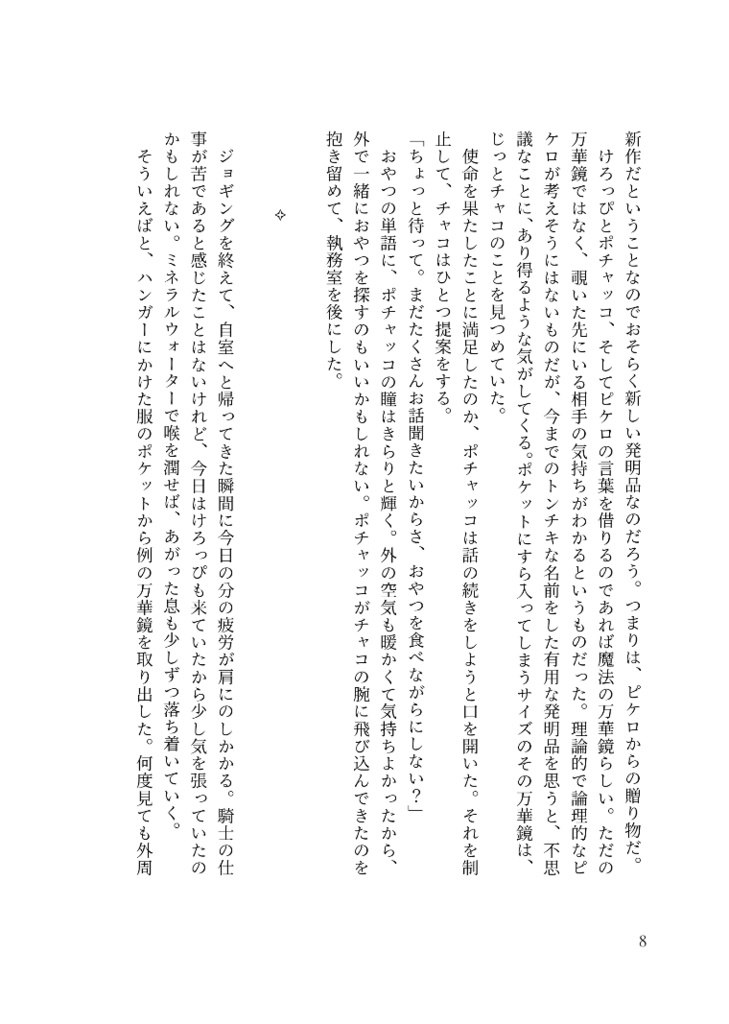 新作だということなのでおそらく新しい発明品なのだろう。つまりは、ピケロからの贈り物だ。
けろっぴとポチャッコ、そしてピケロの言葉を借りるのであれば魔法の万華鏡らしい。ただの
万華鏡ではなく、覗いた先にいる相手の気持ちがわかるというものだった。理論的で論理的なピ
ケロが考えそうにはないものだが、今までのトンチキな名前をした有用な発明品を思うと、不思
議なことに、あり得るような気がしてくる。ポケットにすら入ってしまうサイズのその万華鏡は、
じっとチャコのことを見つめていた。
使命を果たしたことに満足したのか、ポチャッコは話の続きをしようと口を開いた。それを制
止して、チャコはひとつ提案をする。
「ちょっと待って。まだたくさんお話聞きたいからさ、おやつを食べながらにしない？」
おやつの単語に、ポチャッコの瞳はきらりと輝く。外の空気も暖かくて気持ちよかったから、
外で一緒におやつを探すのもいいかもしれない。ポチャッコがチャコの腕に飛び込んできたのを
抱き留めて、執務室を後にした。
✧
ジョギングを終えて、自室へと帰ってきた瞬間に今日の分の疲労が肩にのしかかる。騎士の仕
事が苦であると感じたことはないけれど、今日はけろっぴも来ていたから少し気を張っていたの
かもしれない。ミネラルウォーターで喉を潤せば、あがった息も少しずつ落ち着いていく。
そういえばと、ハンガーにかけた服のポケットから例の万華鏡を取り出した。何度見ても外周
8